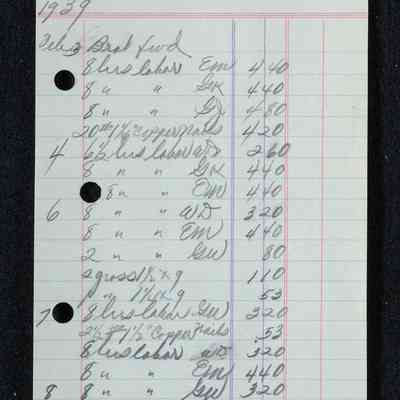 1939
Feb 3 Boat
8 hrs labor EM 4 40
8 " " GK 4 40
8 " " 4 80
20# 1 1/2" Copper Nails 4 20
4 6 1/2 hrs labor WD 2 60
8 " " GK 4 40
8 " " EM 4 40
6 8 " " WD 3 20
8 " " EM 4 40
2 " " GW 80
2 gross 1 1/2 x 9 1 10
1 " 1 1/4 x 9 53
7 8 hrs labor GW 3 20
1 1/2" Copper Nails .53
8 hrs labor WD 3 20
8 " " EM 4 40
8 8 " " GW 3 20